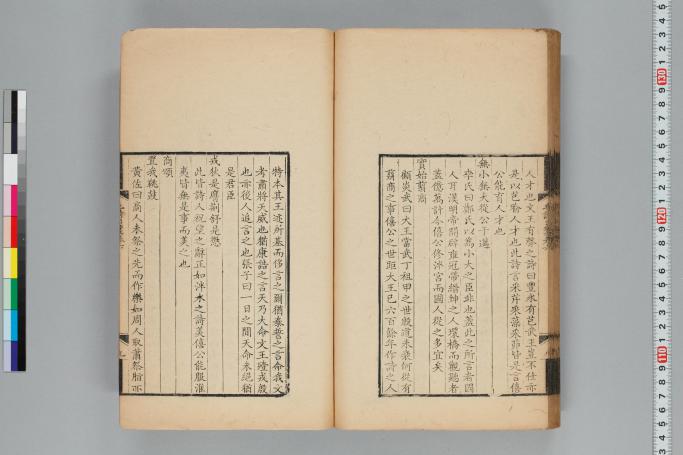 人才也文王有聲之詩曰豐水有芑武王豈不仕亦
是以芑喻人才也此詩言采芹采藻采茆皆是言僖
公能育人才也
無小無大從公于邁
李氏曰鄭氏以為小大之臣非也蓋此之所言者國
人耳漢明帝開辟雍冠帶縉紳之人環橋而觀聽者
蓋億萬計今僖公修泮宮而國人從之多宜矣
實始翦商
顧炎武曰大王當武丁祖甲之世殷道未衰何從有
翦商之事僖公之世距大王已六百餘年作詩之人
特本其王迹所基而侈言之爾猶泰誓之言命我文
考肅將天威也猶康誥之言天乃大命文王殪戎殷
也亦後人追言之也張子曰一日之間天命未絕猶
是君臣
戎狄是膺荊舒是懲
此皆詩人祝望之辭正如泮水之詩美僖公能服淮
夷皆無是事而美之也
商頌
置我鞉鼓
黃佐曰商人奉祭之先而作樂如周人取蕭祭脂亦